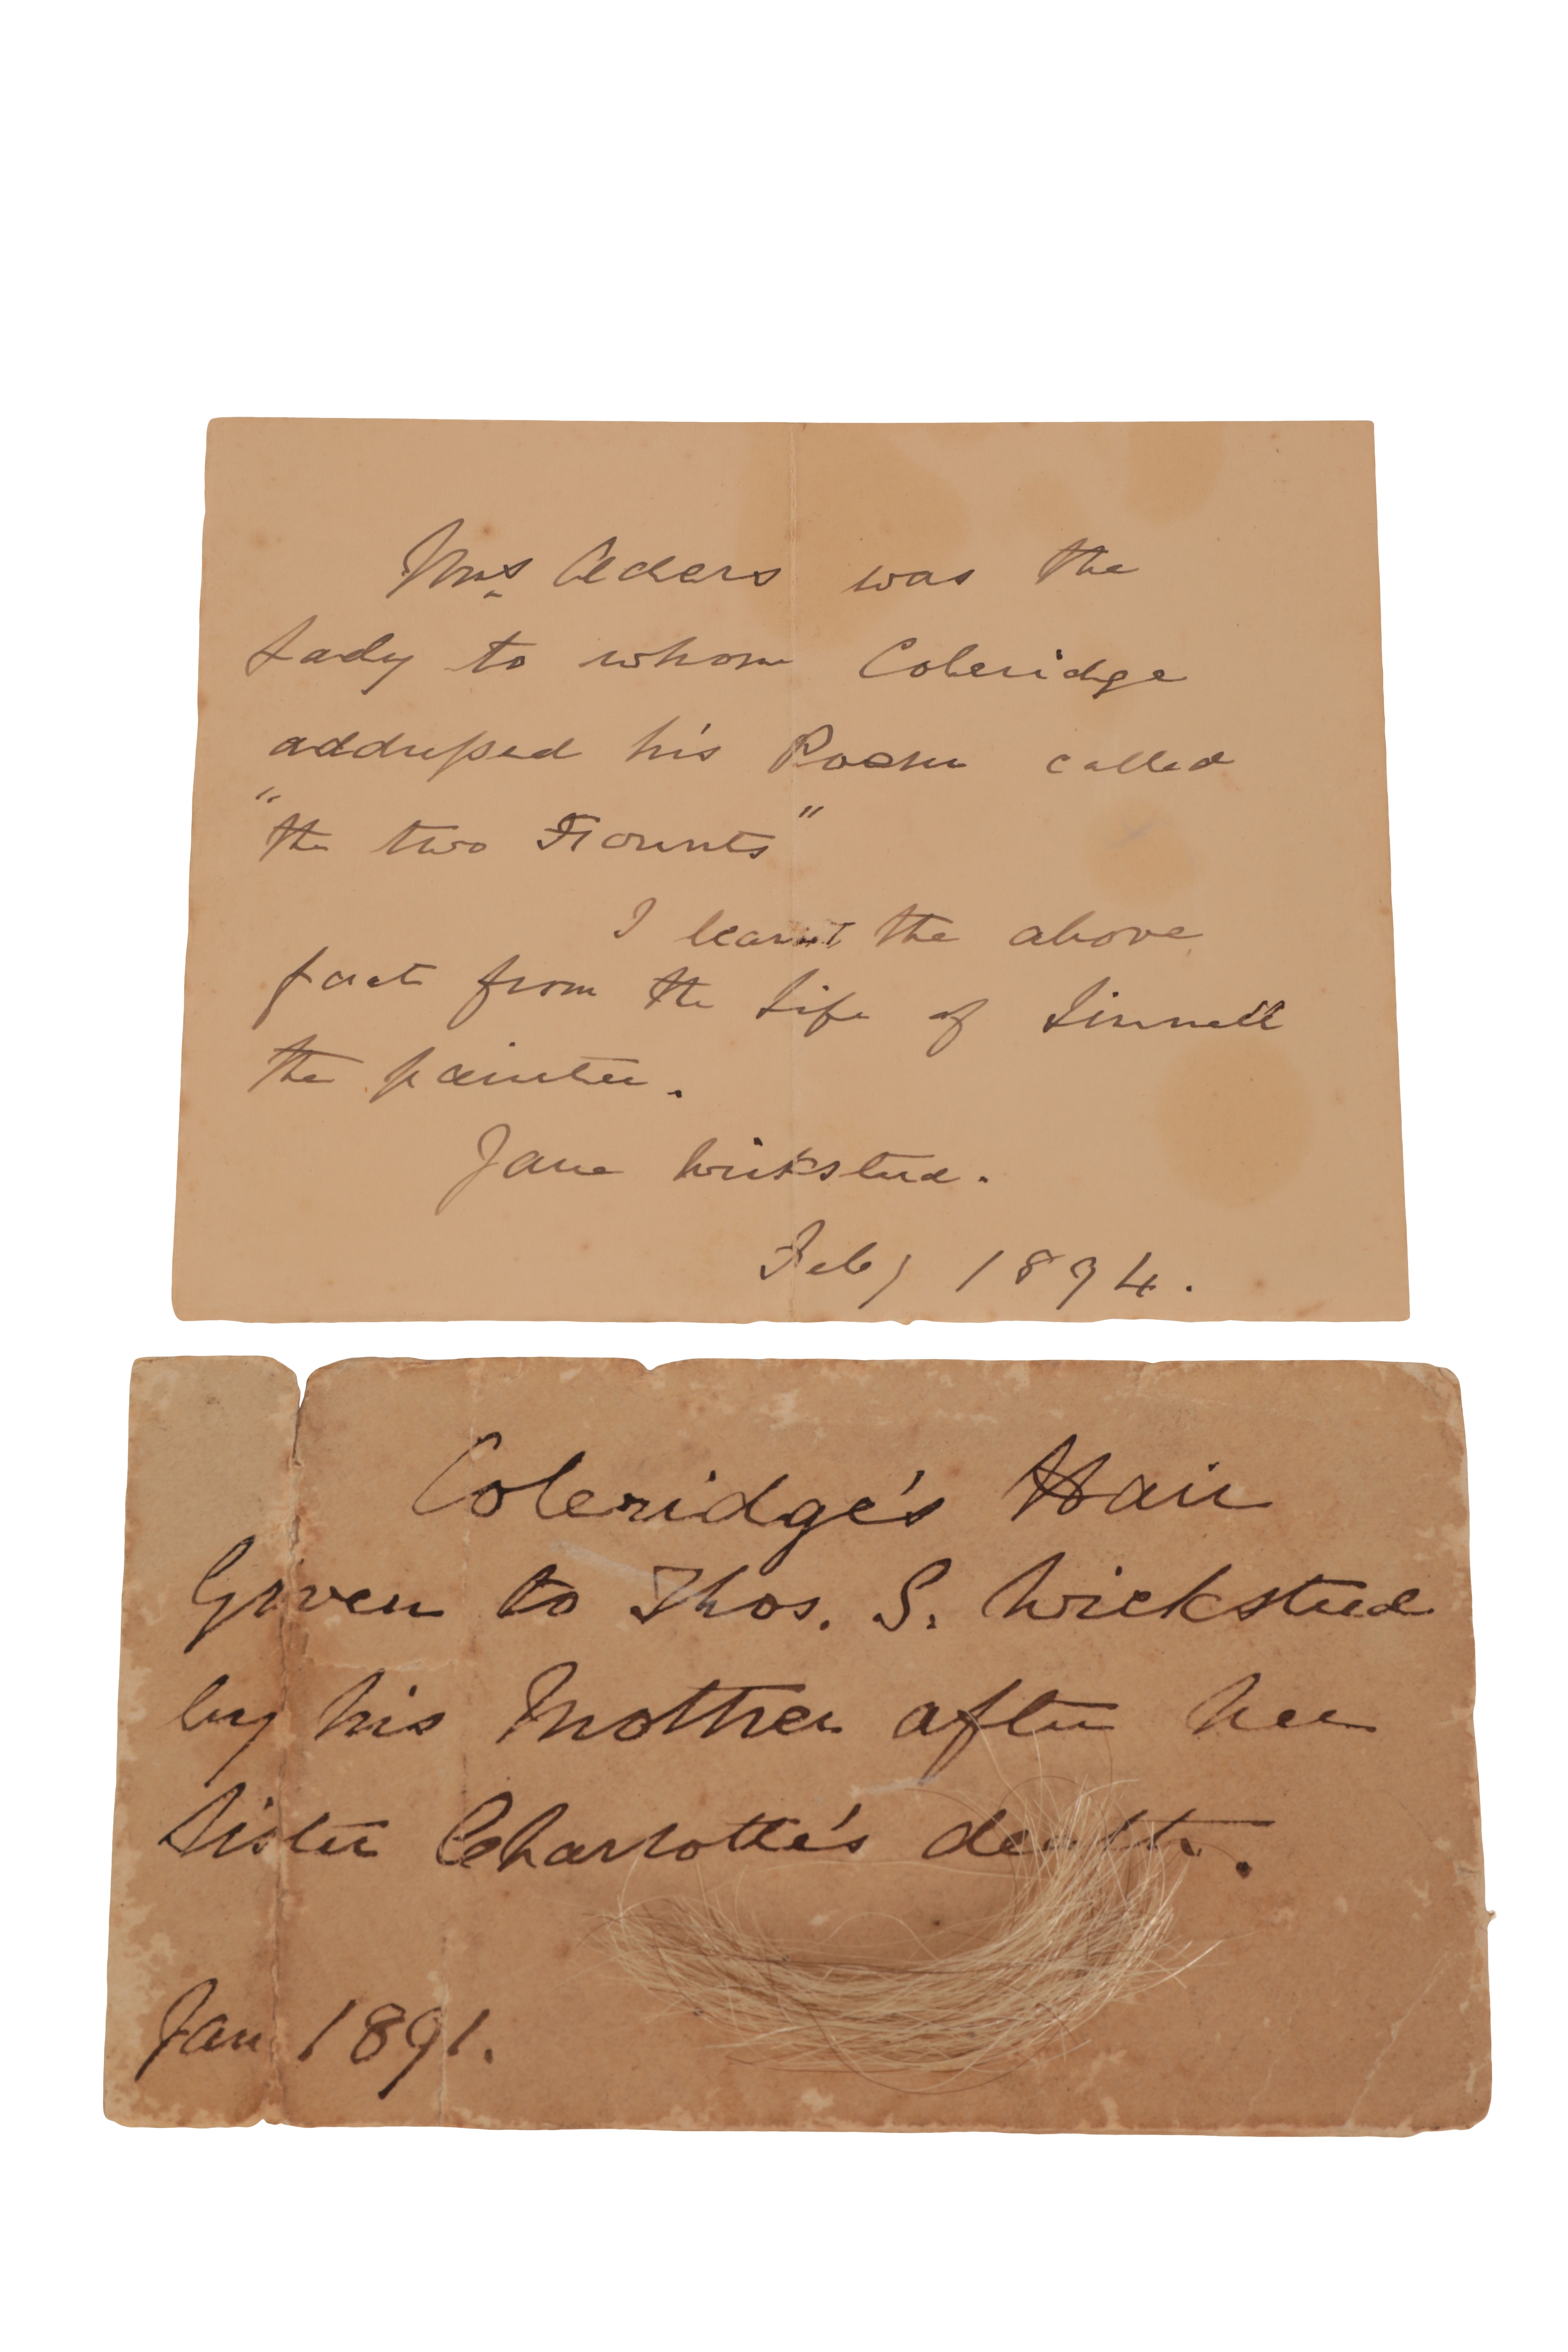 Mrs Aders was the
Lady to whom Coleridge
addressed his Poem called
"the two Founts"
I learnt the above
fact from the Life of Linnell
the painter.
Jane Wicksteed.
Feby 1894.
Coleridge's Hair
Given to Thos. S. Wicksteed
by his Mother after her
Sister Charlotte's death.
Jan 1891.